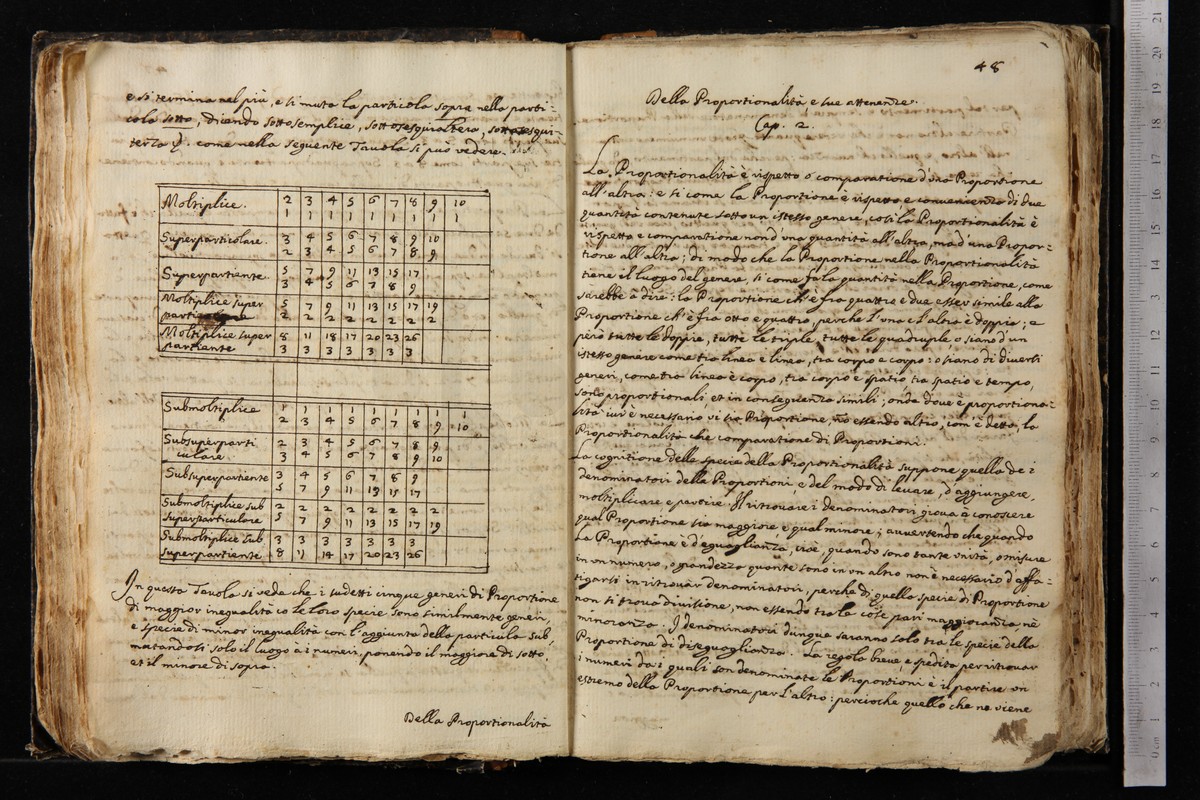 e si termina nel più, e si muta la particola sopra nella parti=
cola sotto, dicendo sottosemplice, sottosesquialtero, sottosesqui=
terza &. come nella seguente Tavola si può vedere.
Moltiplice. 2 3 4 5 6 7 8 9 10
1 1 1 1 1 1 1 1 1
Superparticolare. 3 4 5 6 7 8 9 10
2 3 4 5 6 7 8 9
Superpartiente. 5 7 9 11 13 15 17
3 4 5 6 7 8 9
Moltiplice super 5 7 9 11 13 15 17 19
2 2 2 2 2 2 2 2
Moltiplice super 8 11 18 17 20 23 26
partiente 3 3 3 3 3 3 3
Submoltiplice 1 1 1 1 1 1 1 1 1
2 3 4 5 6 7 8 9 10
Subsuperparti 2 3 4 5 6 7 8 9
culare. 3 4 5 6 7 8 9 10
Subsuperpartiente 3 4 5 6 7 8 9
5 7 9 11 13 15 17
Submoltiplice sub 2 2 2 2 2 2 2 2
superparticulare 5 7 9 11 13 15 17 19
Submoltiplice sub 3 3 3 3 3 3 3
superpartiente 8 11 14 17 20 23 26
In questa Tavola si vede che i sudetti cinque generi di Proportione
di maggior inegualità co le loro specie sono similmente generi,
e specie di minor inegualità con l'aggiunta della particula sub,
mutandosi solo il luogo a i numeri, ponendo il maggiore di sotto,
et il minore di sopra.
Della Proportionalità
48
Della Proportionalità, e sue attenenze.
Cap. 2.
La Proportionalità è rispetto o comparatione d'una Proportione
all'altra: e si come la Proportione è rispetto e convenienza di due
quantità contenute sotto un istesso genere, così la Proportionalità è
rispetto e comparatione non d'una quantità all'altra, ma d'una Propor=
tione all'altra; di modo che la Proportione nella Proportionalità
tiene il luogo del genere, si come fa la quantità nella Proportione, come
sarebbe à dire: la Proportione ch'è fra quattro e due esser simile alla
Proportione ch'è fra otto e quattro, perche l'una e l'altra è doppia; e
però tutte le doppie, tutte le triple, tutte le quadruple, o siano d'un
istesso genere come tra linea e linea, tra corpo e corpo: o siano di diversi
generi, come tra linea è corpo, tra corpo e spatio tra spatio e tempo,
sono proportionali, et in conseguenza simili; onde dove è proportiona=
lità ivi è necessario vi sia Proportione, nō essendo altro, com'è detto, la
Proportionalità che comparatione di Proportioni.
La cognitione delle specie della Proportionalità suppone quella de i
denominatori della Proportioni, e del modo di levare, d'aggiungere,
moltiplicare e partire. Il ritrovare i denominatori giova à conoscere
qual Proportione sia maggiore, e qual minore; avvertendo che quando
la Proportione è d'eguaglianza, cioè, quando sono tante unità, o misure
in un numero, o grandezza quante sono in un altro non è necessario d'affa=
tigarsi in ritrovar denominatori, perche di quella specie di Proportione
non si trova divisione, non essendo tra le cose pari maggioranza, nè
minoranza. I denominatori dunque saranno solo tra le specie della
Proportione di diseguaglianza. La regola breve, e spedita per ritrovar
i numeri da i quali son denominate le Proportioni è il partire un
estremo della Proportione per l'altro: percioche quello che ne viene